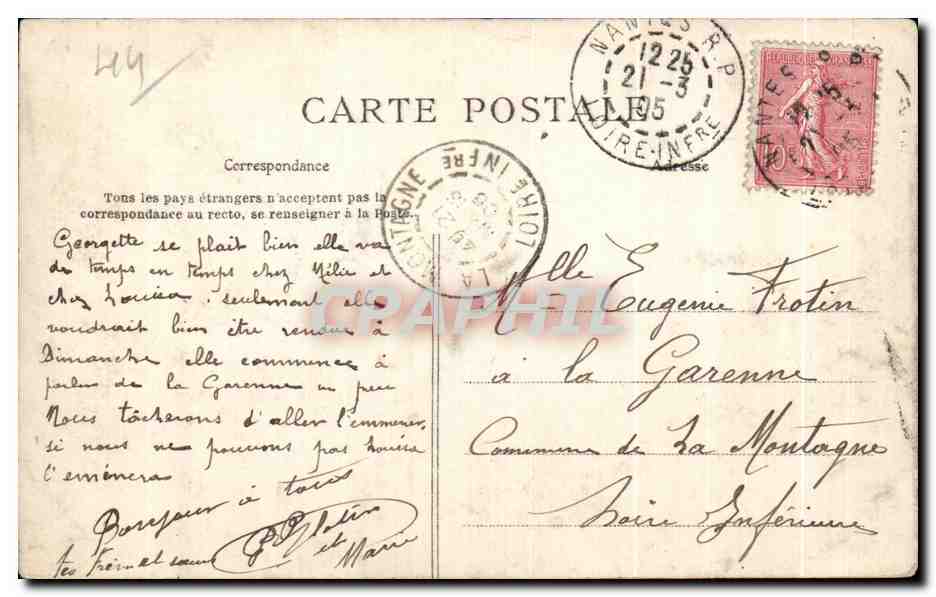 44
CARTE POSTALE
NANTES R.P.
12 25
21 - 3
05
LOIRE-INFRE
NANTES
REPUBLIQUE FRANCAISE
10
Correspondance
Adresse
Tous les pays étrangers n'acceptent pas la
correspondance au recto, se renseigner à la Poste.
LA MONTAGNE
LOIRE INFRE
Georgette se plait bien elle va
de temps en temps chez Mélie et
chez Louisa, seulement elle
voudrait bien être rendue à
Dimanche elle commence à
parler de la Garenne un peu
Nous tâcherons d'aller l'emmener
si nous ne pouvons pas Louisa
l'emènera
Bonjour à tous
tes frère et soeur
et
Marie
Mlle Eugenie Frotin
à la Garenne
Commune de La Montagne
Loire Inférieure
CPAPHIL